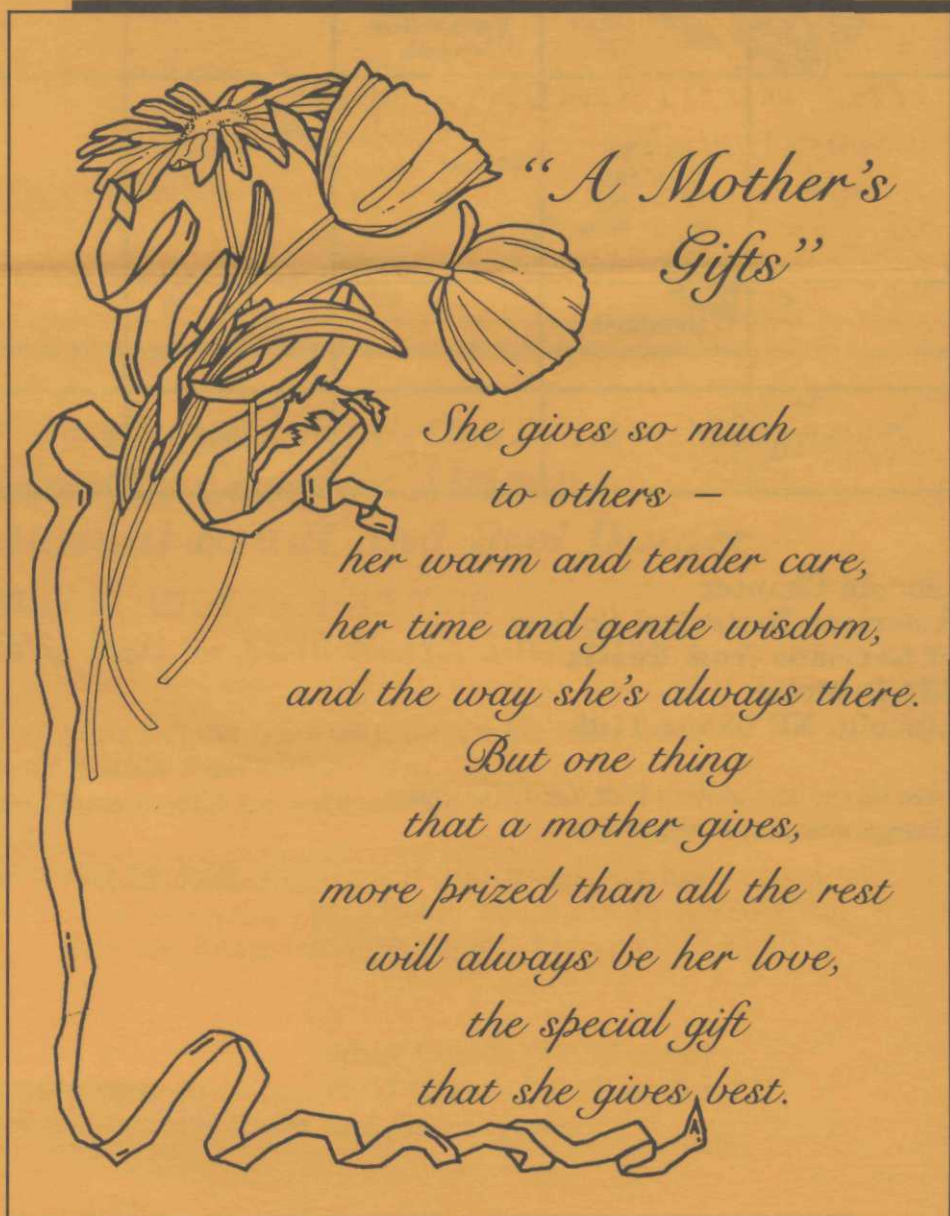 “A Mother’s
Gifts”
She gives so much
to others –
her warm and tender care,
her time and gentle wisdom,
and the way she’s always there.
But one thing
that a mother gives,
more prized than all the rest
will always be her love,
the special gift
that she gives best.